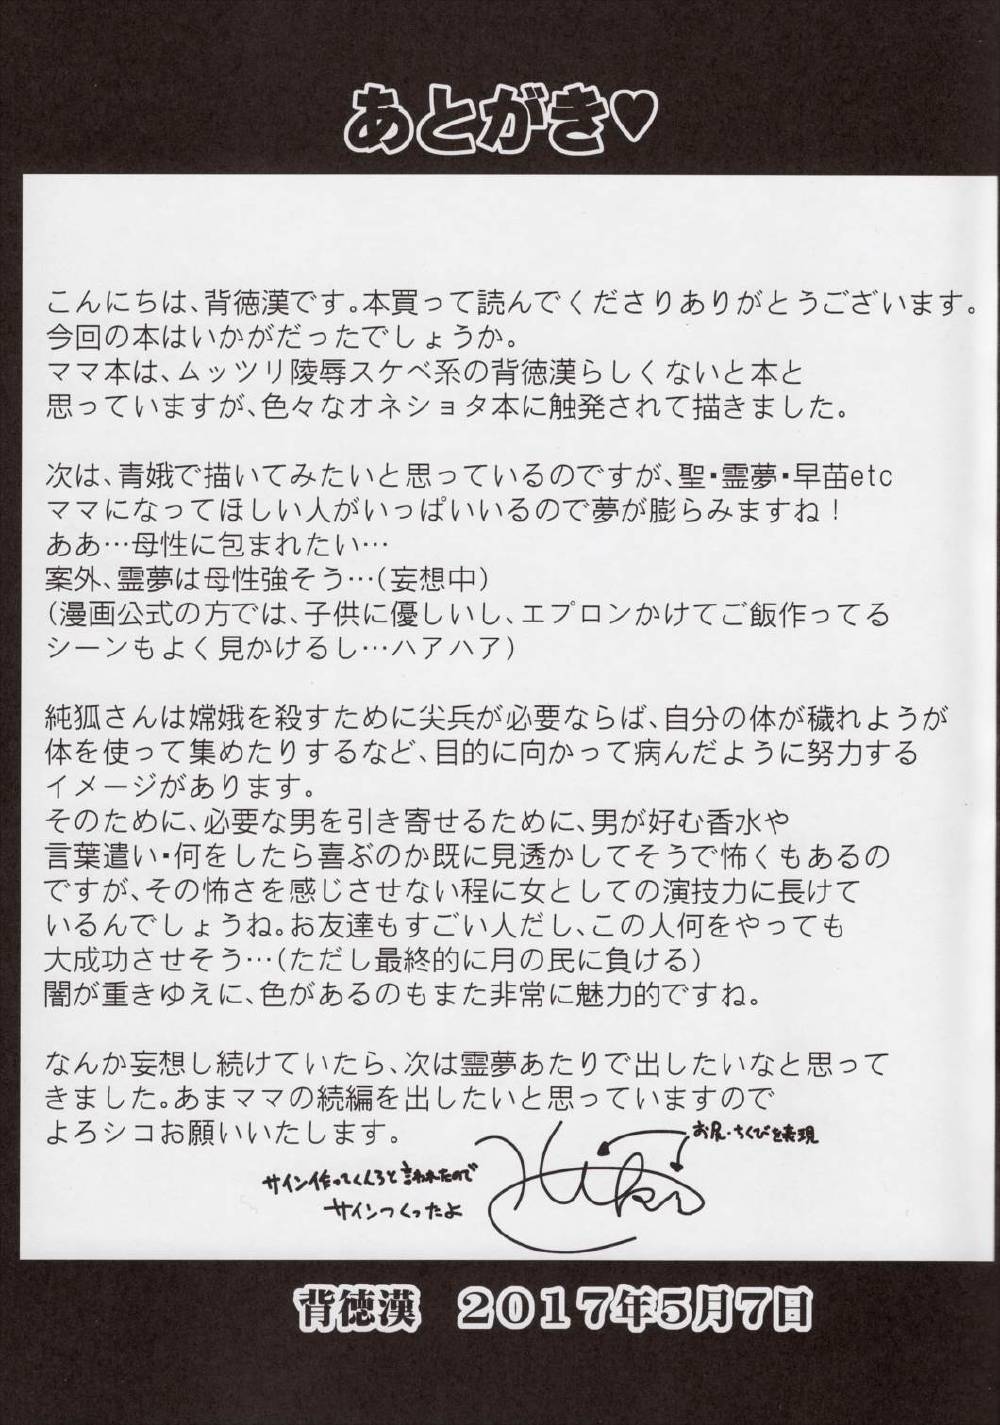 あとがき♡
こんにちは、背徳漢です。本買って読んでくださりありがとうございます。
今回の本はいかがだったでしょうか。
ママ本は、ムッツリ陵辱スケベ系の背徳漢らしくないと本と
思っていますが、色々なオネショタ本に触発されて描きました。
次は、青娥で描いてみたいと思っているのですが、聖・霊夢・早苗etc
ママになってほしい人がいっぱいいるので夢が膨らみますね！
ああ…母性に包まれたい…
案外、霊夢は母性強そう…(妄想中)
(漫画公式の方では、子供に優しいし、エプロンかけてご飯作ってる
シーンもよく見かけるし…ハアハア)
純狐さんは嫦娥を殺すために尖兵が必要ならば、自分の体が穢れようが
体を使って集めたりするなど、目的に向かって病んだように努力する
イメージがあります。
そのために、必要な男を引き寄せるために、男が好む香水や
言葉遣い・何をしたら喜ぶのか既に見透かしてそうで怖くもあるの
ですが、その怖さを感じさせない程に女としての演技力に長けて
いるんでしょうね。お友達もすごい人だし、この人何をやっても
大成功させそう…(ただし最終的に月の民に負ける)
闇が重きゆえに、色があるのもまた非常に魅力的ですね。
なんか妄想し続けていたら、次は霊夢あたりで出したいなと思って
きました。あまママの続編を出したいと思っていますので
よろシコお願いいたします。
お尻・ちくびを表現
サイン作ってくんろと言われたので
サインつくったよ
背徳漢　2017年5月7日